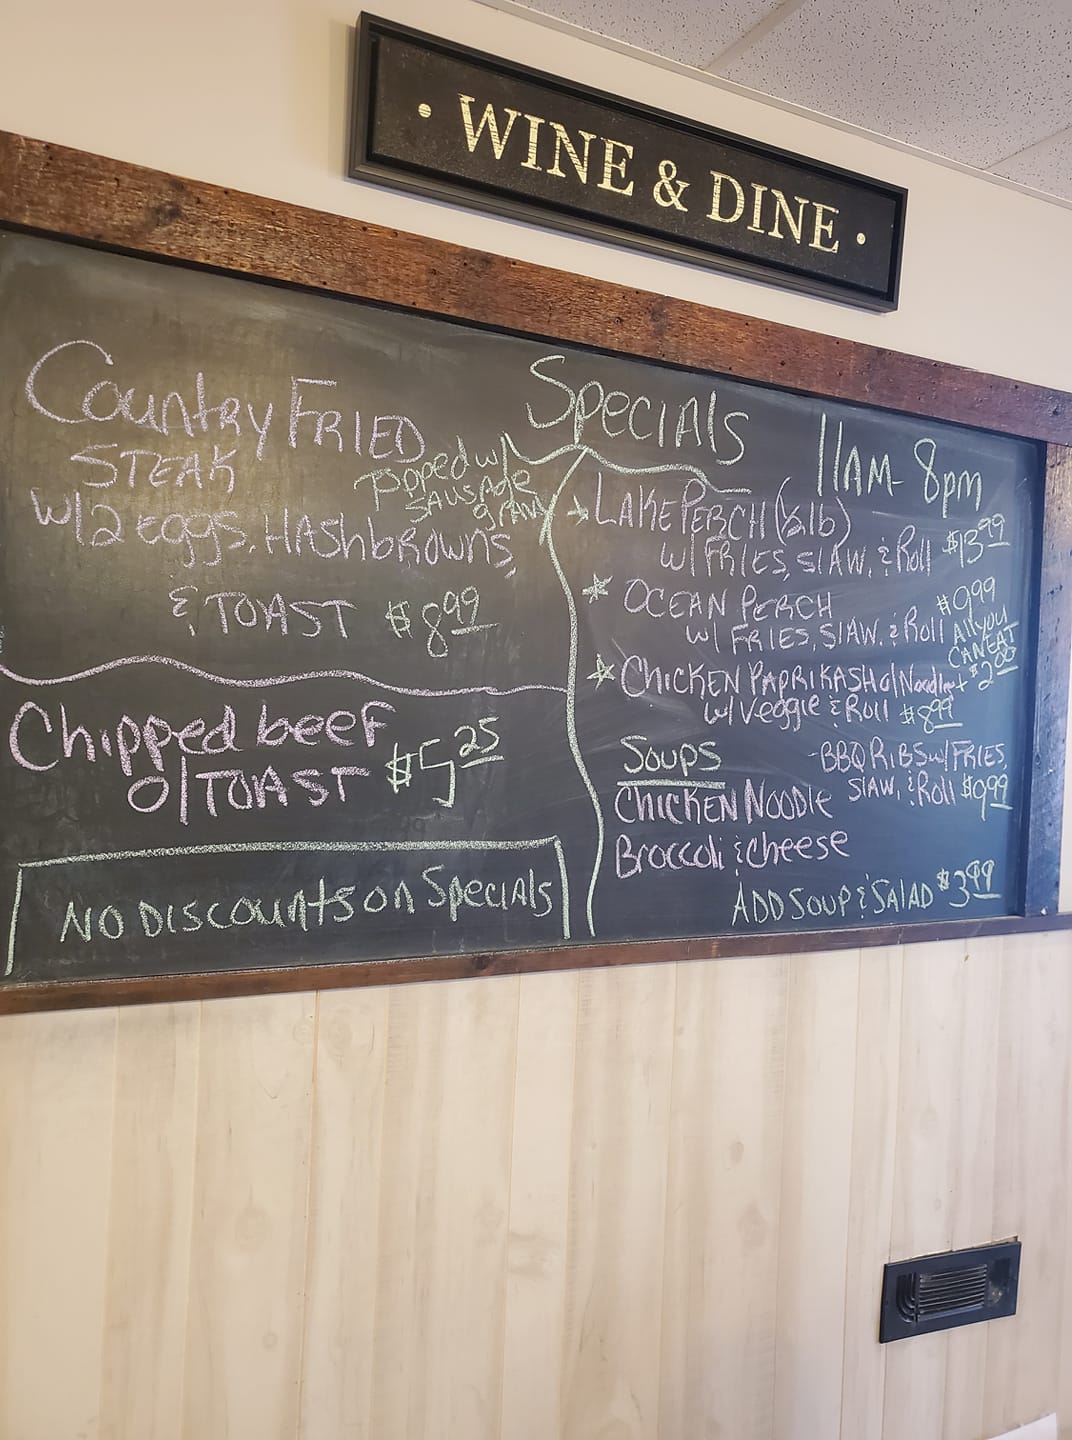 • WINE & DINE •
Specials
Country FRIED
STEAK
Topped w/
SAUSAGE
GRAVY
w/2 eggs, HAShbROWNS,
& TOAST $8.99
Chipped beef
O/TOAST $5.25
NO DISCOUNTS ON SpeciAls
11AM-8pm
LAKE PERCH (1/2lb)
w/ FRIES, SlAW, & Roll $13.99
OCEAN PERCH $9.99
w/ FRIES, SlAW, & Roll All you
CAN EAT
+ $2.00
CHICKEN PAPRIKASH o/Noodles
w/ Veggie & Roll $8.99
-BBQ RIBS w/ FRIES,
SlAW, & Roll $9.99
Soups
CHICKEN NOODLE
Broccoli & Cheese
ADD SOUP & SALAD $3.99